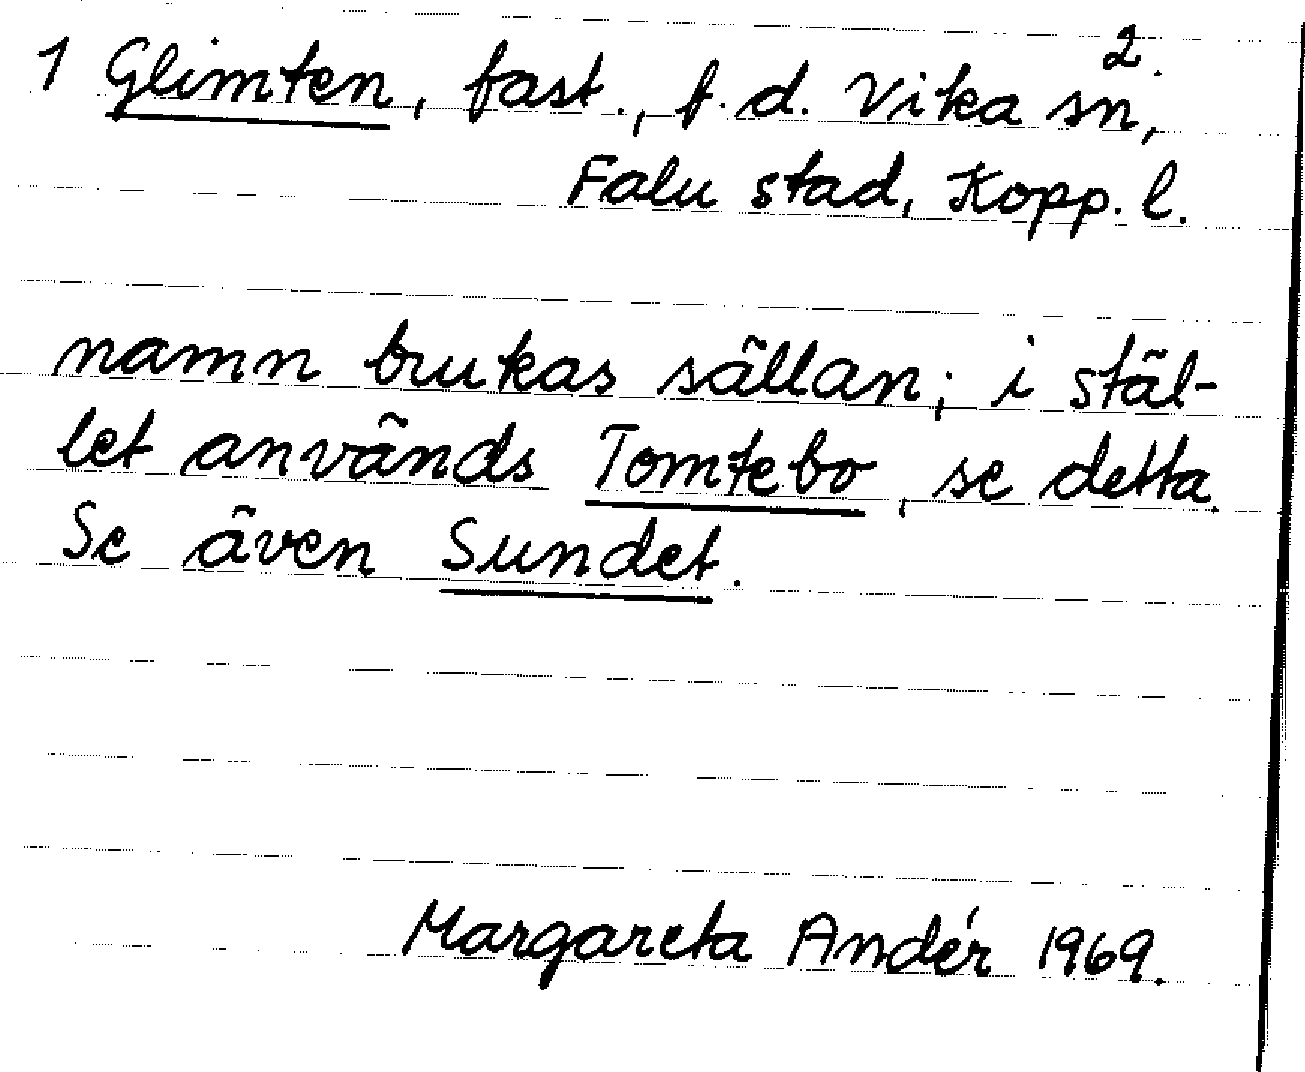 2.
1 Glimten, fast., f.d. Vika sn,
Falu stad, Kopp. l.
namn brukas sällan; i stäl-
let används Tomtebo, se detta.
Se även Sundet.
Margareta Andér 1969.